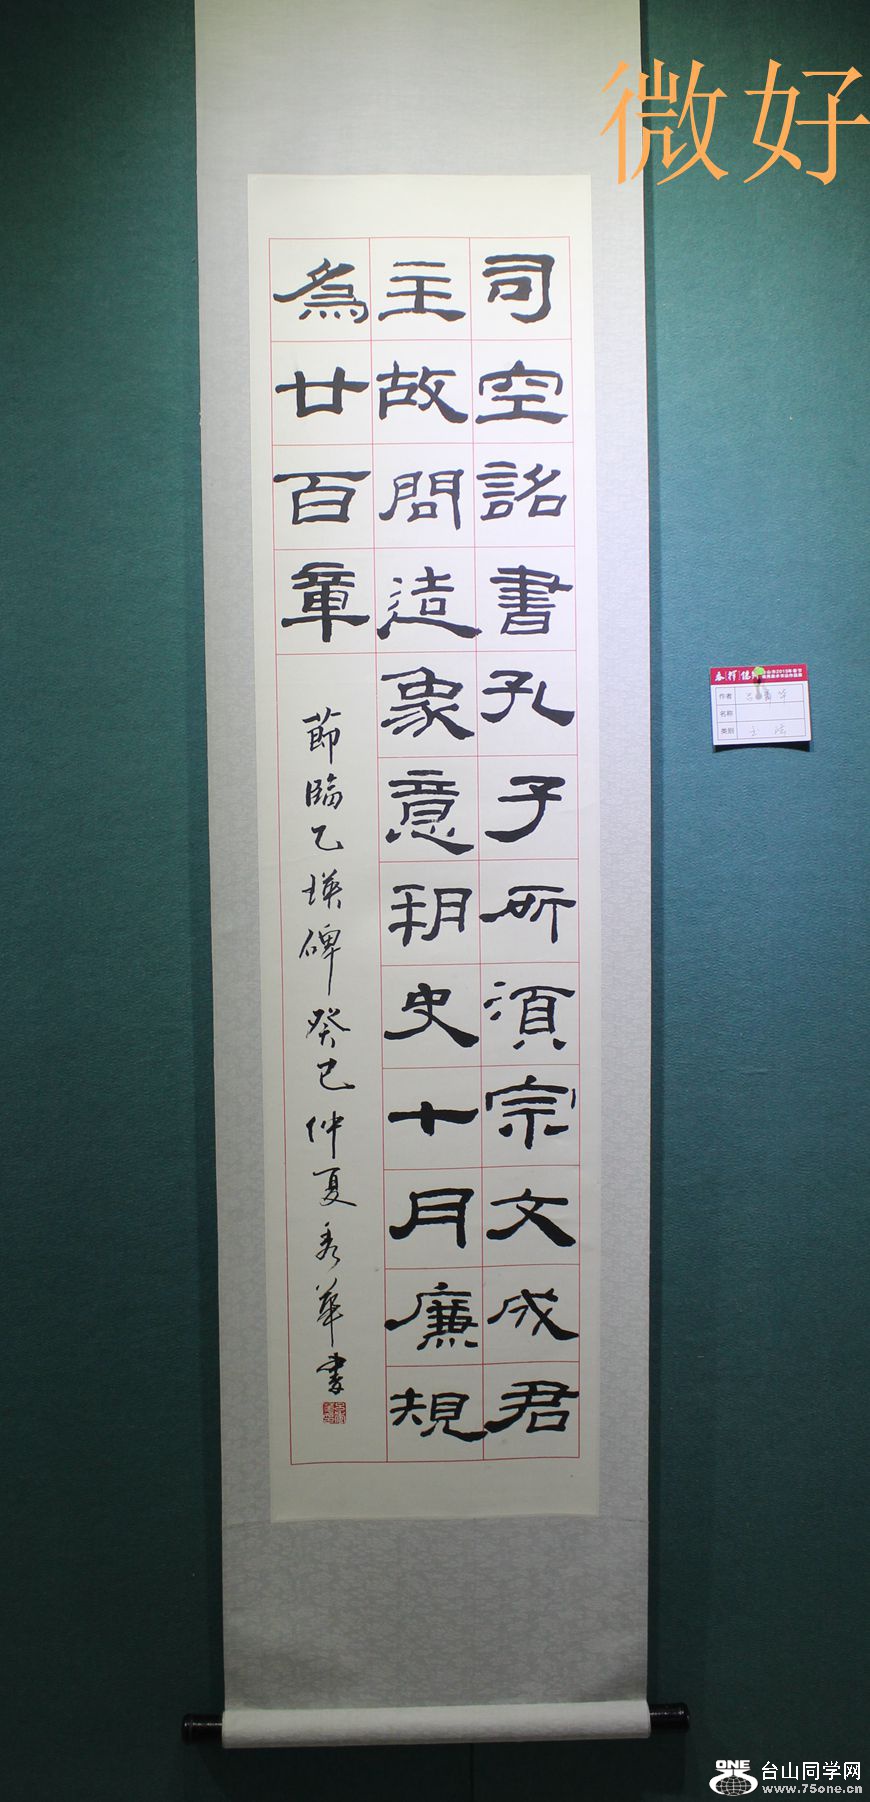 微好
司空詺書孔子所須宗文成君
主故問造象意朙史十月廉規
為廿百章
節臨乙瑛碑癸巳仲夏秀華書
作者
名称
类别
ONE
台山同学网
www.75one.cn